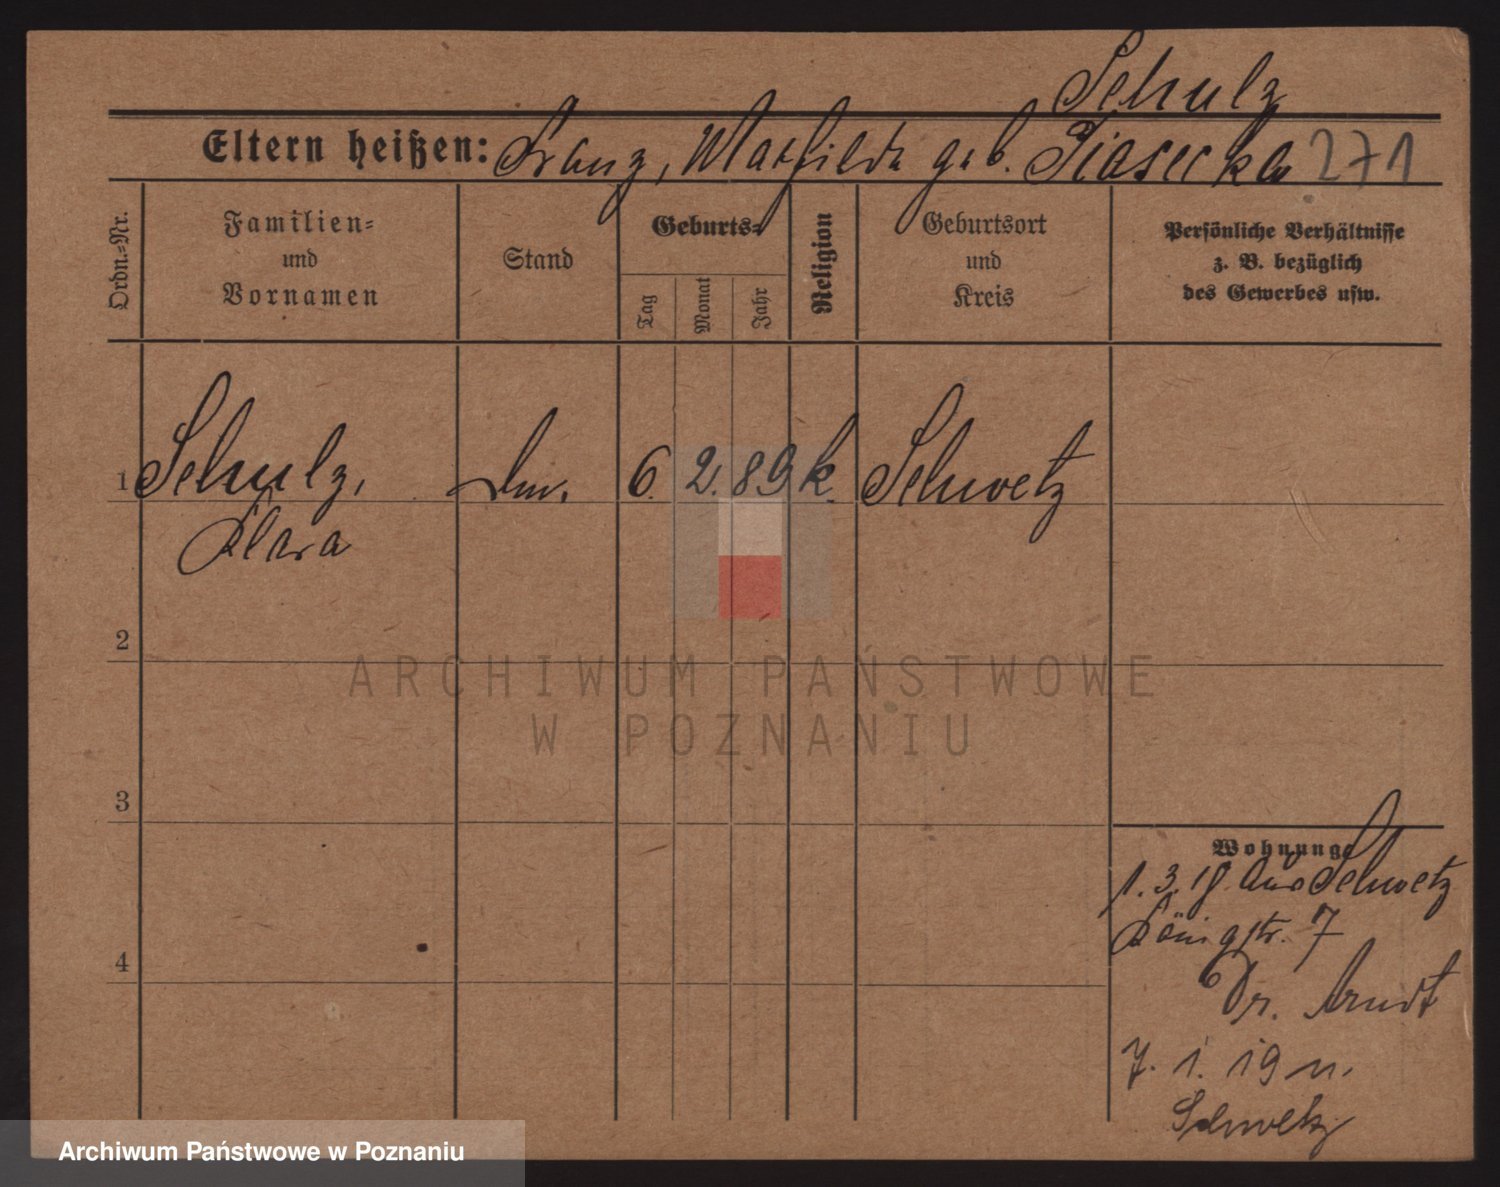 Schulz
Eltern heißen: Franz, Mathilde geb. Piasecka 271
Ordn.=Nr.
Familien=
und
Vornamen
Stand
Geburts=
Tag
Monat
Jahr
Religion
Geburtsort
und
Kreis
Persönliche Verhältnisse
z. B. bezüglich
des Gewerbes usw.
1 Schulz, 6. 2. 89 k. Schwetz
Klara
2
3
4
Wohnung
1. 3. 18. aus Schwetz
Königstr. 7
Dr. Arndt
7. 1. 19 n.
Schwetz
ARCHIWUM PAŃSTWOWE
W POZNANIU
Archiwum Państwowe w Poznaniu